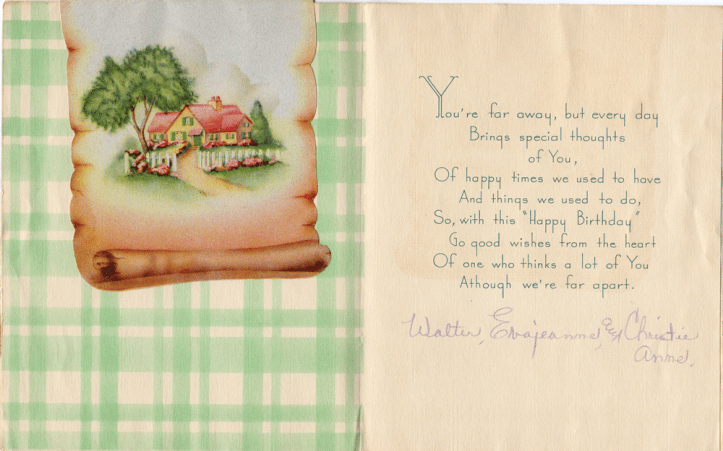 You're far away, but every day
Brings special thoughts
of You,
Of happy times we used to have
And things we used to do,
So, with this "Happy Birthday"
Go good wishes from the heart
Of one who thinks a lot of You
Athough we're far apart.
Walter, Evajeanne, & Christie
Anne.